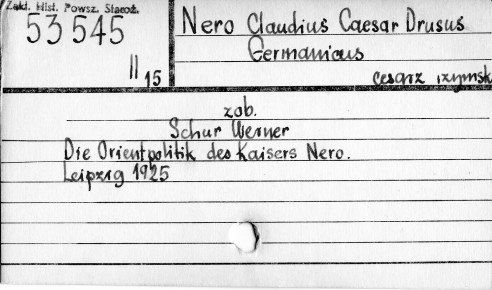 Zakł. Hist. Powsz. Staroż.
53 545
II 15
Nero Claudius Caesar Drusus
Germanicus
cesarz rzymsk
zob.
Schur Werner
Die Orientpolitik des Kaisers Nero.
Leipzig 1925